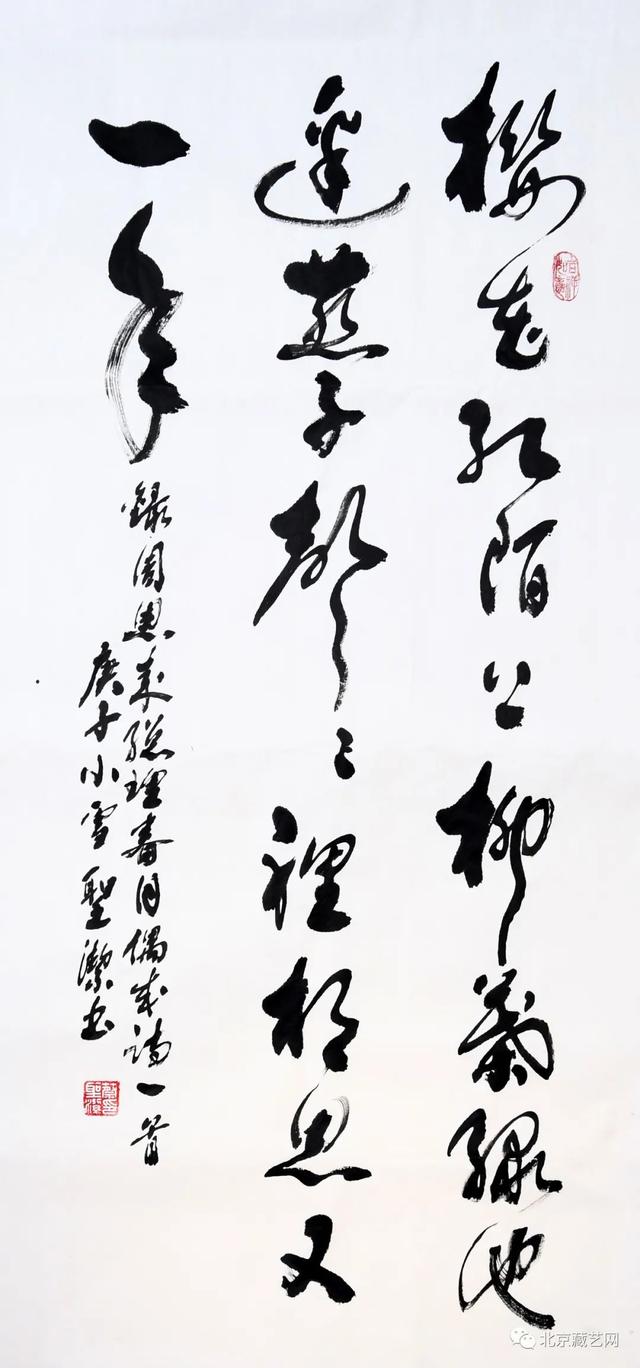 樱花红陌上柳叶绿池
边燕子声声里相思又
一年
录周恩来总理春日偶成诗一首
庚子小雪圣洁书
北京藏艺网